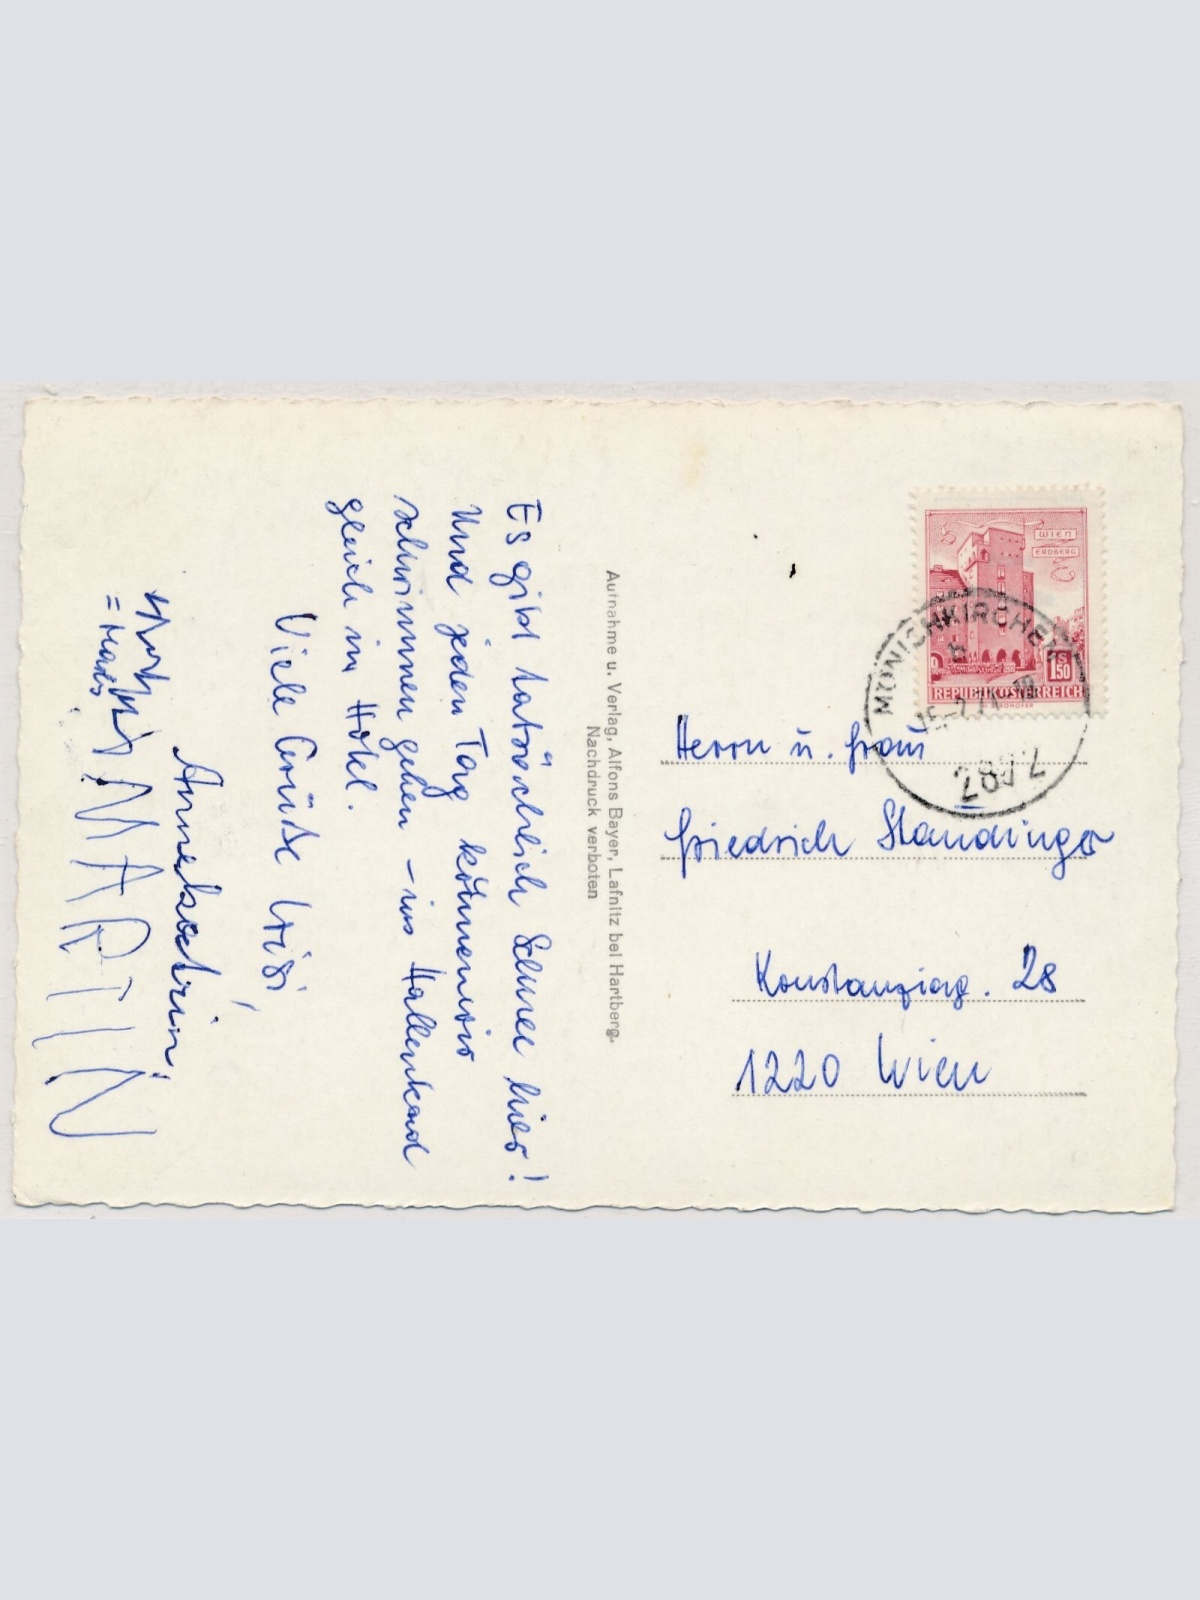 Es gibt tatsächlich Schnee hier!
Und jeden Tag können wir
schwimmen gehen – im Hallenbad
gleich im Hotel.
Viele Grüße
Annekatrin!
= Hans
MARTIN
Aufnahme u. Verlag, Alfons Bayer, Lafnitz bei Hartberg.
Nachdruck verboten
WIEN
ERDBERG
S
1.50
REPUBLIK ÖSTERREICH
MÖNICHKIRCHEN
b
2872
Herrn u. Frau
Friedrich Staudinger
Konstanziag. 28
1220 Wien